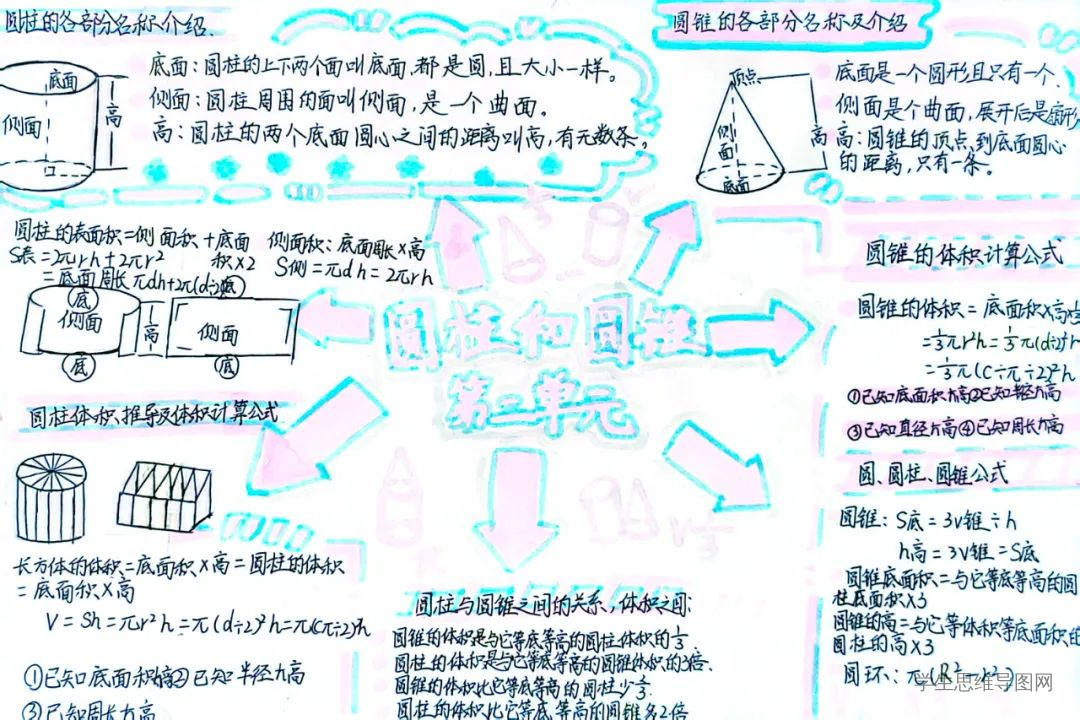 圆柱的各部分名称介绍.
底面
侧面
高
底面：圆柱的上下两个面叫底面，都是圆，且大小一样。
侧面：圆柱周围的面叫侧面，是一个曲面.
高：圆柱的两个底面圆心之间的距离叫高，有无数条。
圆锥的各部分名称及介绍
顶点
侧面
高
底面
底面是一个圆形且只有一个.
侧面是个曲面，展开后是扇形
高：圆锥的顶点到底面圆心
的距离，只有一条。
圆柱的表面积=侧面积+底面
积×2
S表=2πrh+2πr²
=底面周长πdh+2π(d÷2)
侧面积：底面周长×高
S侧=πdh=2πrh
底
侧面
底
高
底
侧面
底
圆柱和圆锥
第二单元
圆柱体积推导及体积计算公式
长方体的体积=底面积×高=圆柱的体积
=底面积×高
V=Sh=πr²h=π(d÷2)²h=π(Cπ÷2)²h
①已知底面积高②已知半径h高
③已知周长h高
圆柱与圆锥之间的关系，体积之间：
圆锥的体积是与它等底等高的圆柱体积的1/3
圆柱的体积是与它等底等高的圆锥体积的3倍.
圆锥的体积比它等底等高的圆柱少
圆柱的体积比它等底等高的圆锥多2倍
圆锥的体积计算公式
圆锥的体积=底面积×高
=1/3πr²h=1/3π(d÷2)²
=1/3π(C÷π÷2)²h
①已知底面积h高②已知半径h高
③已知直径h高④已知周长h高
圆、圆柱、圆锥公式
圆锥：S底=3V锥÷h
h高=3V锥=S底
圆锥底面积=与它等底等高的圆
柱底面积×3
圆锥的高=与它等体积等底面积的
圆柱的高×3
圆环：π(R²-r²)
学生思维导图网